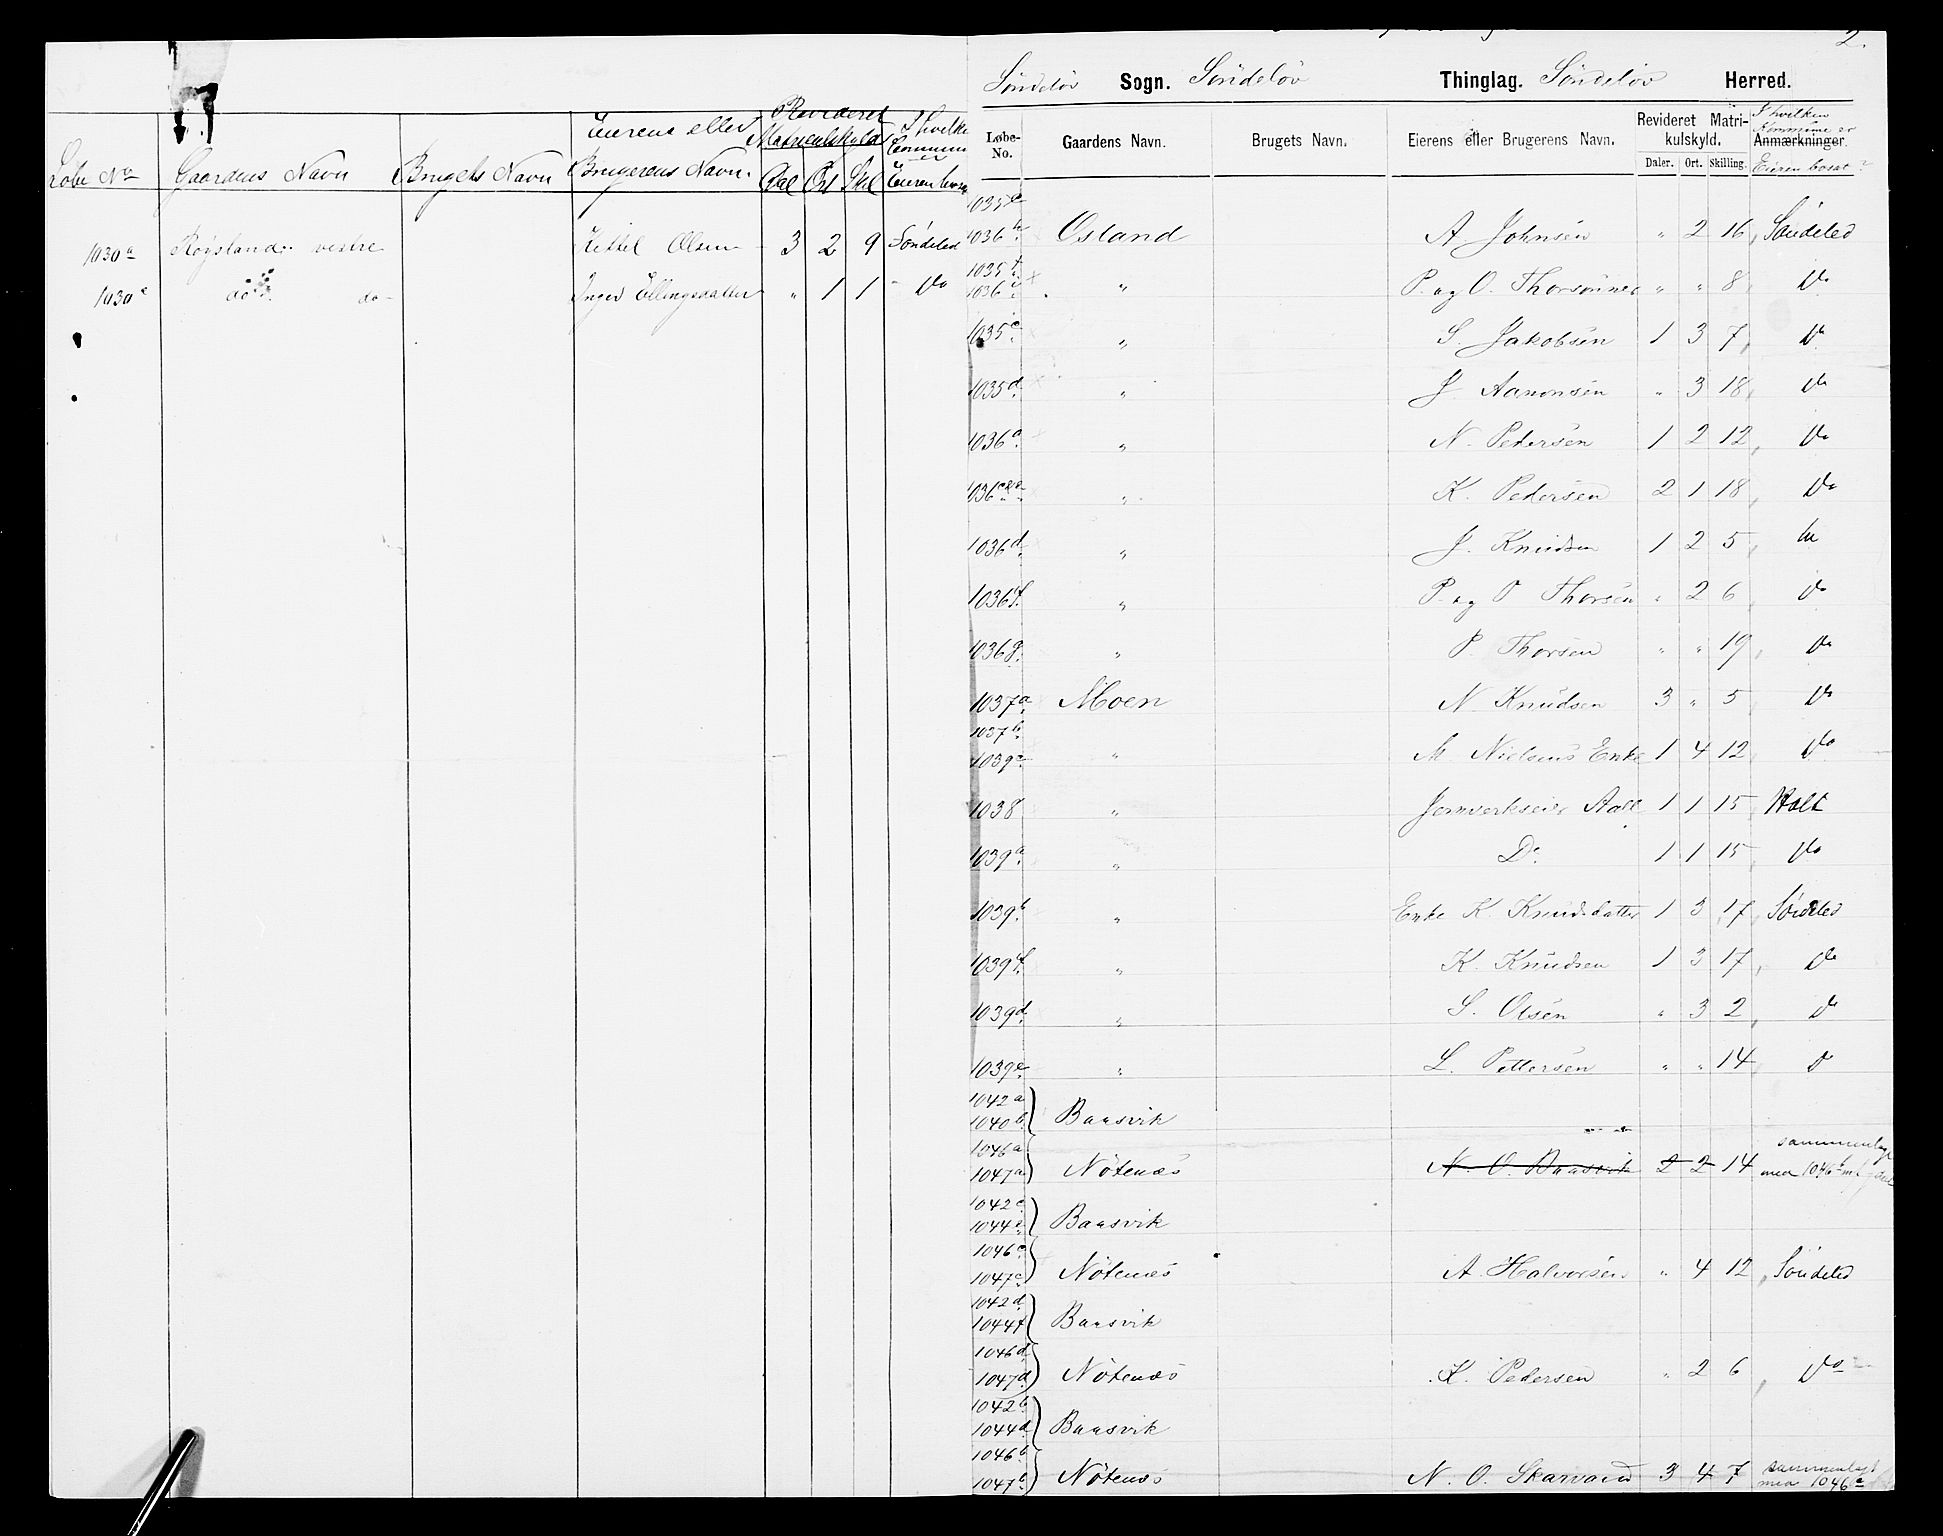 Løbe No Gaardens Navn Brugets Navn Eierens eller Brugerens Navn. Revideret Matriculskyld Dal Ort Skil I hvilke Commune er Eieren bosa
1030a Røysland vestre Kittel Olsen 3 2 9 Søndeled
1030c do do Inger Ellingsdatter " 1 1 Do
2.
Søndeløv Sogn. Søndeløv Thinglag. Søndeløv Herred.
Løbe-No. Gaardens Navn. Brugets Navn. Eierens eller Brugerens Navn. Revideret Matrikulskyld. Daler. Ort. Skilling. Anmærkninger. I hvilken Kommune er Eieren bosat?
1035e
1036b Osland A Johnsen " 2 16 Søndeled
1035f
1036c " P. og O. Thorsønner " " 8 Do
1035c " S. Jakobsen 1 3 7 Do
1035d " J Aanonsen " 3 18 Do
1036a " N. Pedersen 1 2 12 Do
1036 " K. Pedersen 2 1 18 Do
1036d " J. Knudsen 1 2 5 Do
1036f " P. og O Thorsen " 2 6 Do
1036g " P. Thorsen " " 19 Do
1037a Moen N Knudsen 3 " 5 Do
1037b
1039c " M Nielsens Enke 1 4 12 Do
1038 " Jernverkseier Aall 1 1 15 Holt
1039a " Do 1 1 15 Do
1039b " Enke K. Knudsdatter 1 3 17 Søndeled
1039f " K. Knudsen 1 3 17 Do
1039d " S. Olsen " 3 2 Do
1039e " L. Pettersen " " 14 Do
1042a
1040b Baasvik
1046a
1047a Nøtenæs N. O. Baasvik 2 2 14 sammenlagt med 1046b
1042c
1044e Baasvik
1046c
1047c Nøtenæs A. Halvorsen " 4 12 Søndeled
1042d
1044f Baasvik
1046d
1047d Nøtenæs K. Pedersen " 2 6 Do
1042b
1044d Baasvik
1046b
1047b Nøtenæs N. O. Skarvand 3 4 7 sammenlagt med 1046a